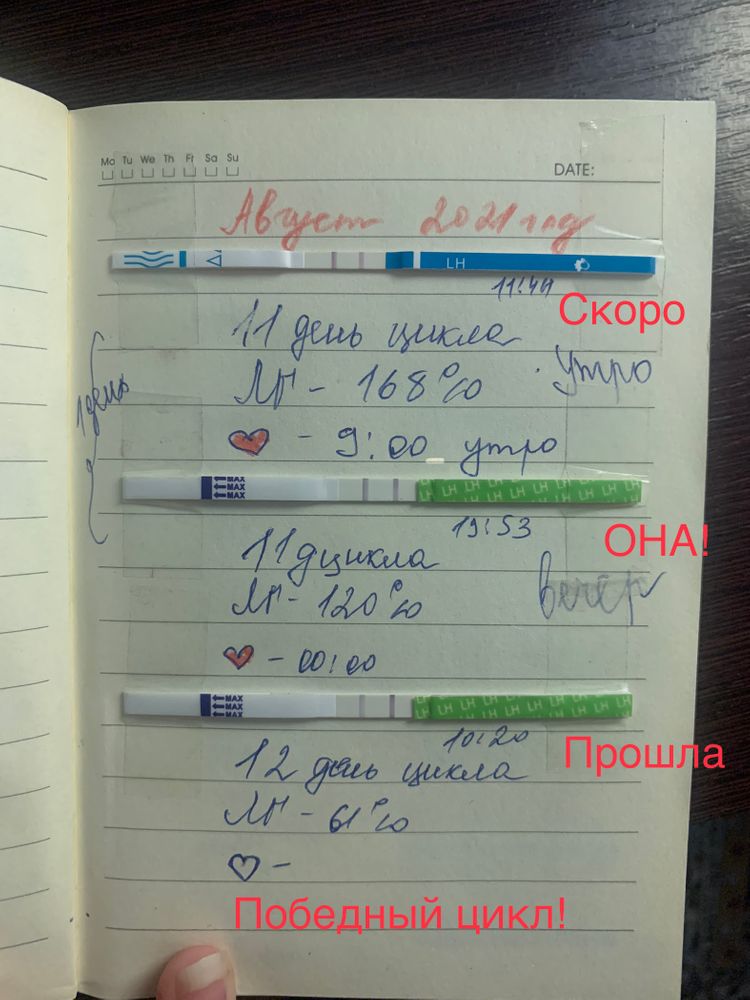 Mo Tu We Th Fr Sa Su
DATE:
Август 2021 год
LH
11:44
Скоро
11 день цикла
ЛГ - 168%
утро
1 день
❤ - 9:00 утро
MAX
MAX
MAX
LH LH LH LH LH LH LH LH LH LH
19:53
ОНА!
11 д цикла
ЛГ - 120%
вечер
❤ - 00:00
MAX
MAX
MAX
LH LH LH LH LH LH LH LH LH LH
10:20
Прошла
12 день цикла
ЛГ - 61%
♡ -
Победный цикл!